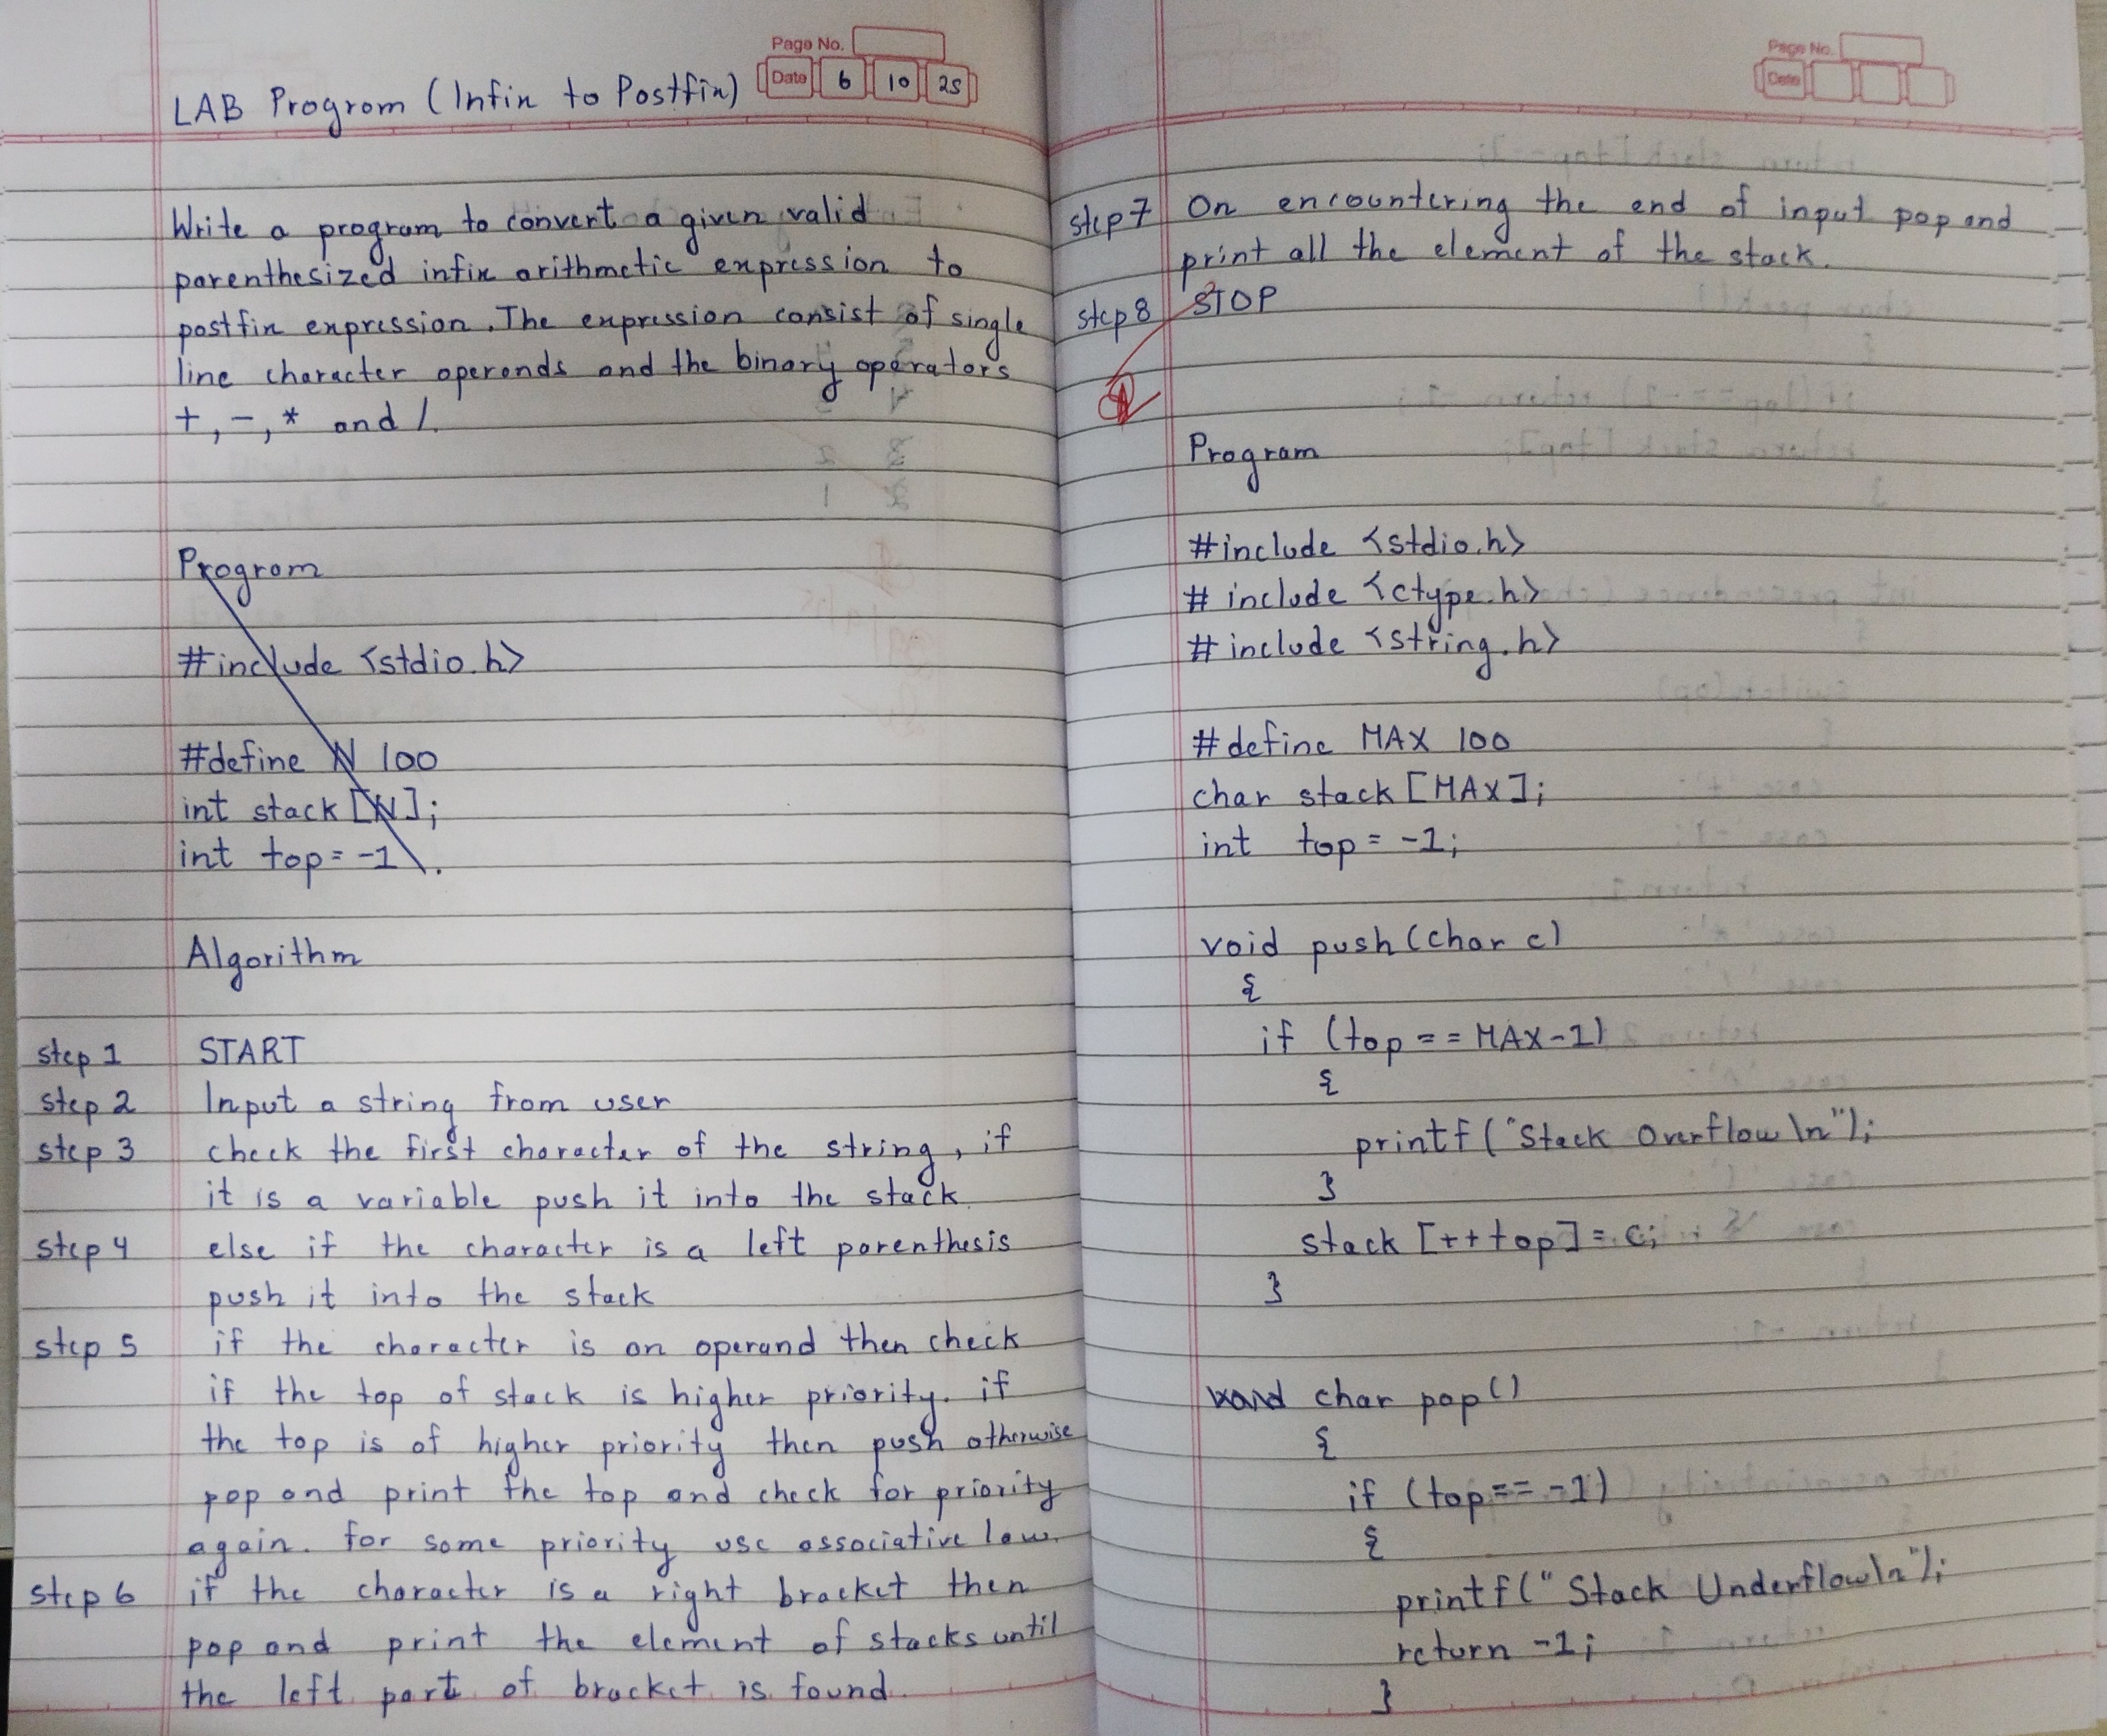 LAB Program (Infix to Postfix)
Page No.
Date 6 10 25
Write a program to convert a given valid
parenthesized infix arithmetic expression to
postfix expression. The expression consist of single
line character operands and the binary operators
+, -, * and /.
Program
#include <stdio.h>
#define N 100
int stack [N];
int top = -1
Algorithm
step 1 START
step 2 Input a string from user
step 3 check the first character of the string, if
it is a variable push it into the stack.
step 4 else if the character is a left parenthesis
push it into the stack
step 5 if the character is an operand then check
if the top of stack is higher priority. if
the top is of higher priority then push otherwise
pop and print the top and check for priority
again. for same priority use associative law.
step 6 if the character is a right bracket then
pop and print the element of stacks until
the left part of bracket is found.
Page No.
Date
step 7 On encountering the end of input pop and
print all the element of the stack.
step 8 STOP
Program
#include <stdio.h>
# include <ctype.h>
# include <string.h>
# define MAX 100
char stack [MAX];
int top = -1;
void push (char c)
{
if (top == MAX-1)
{
printf ("Stack Overflow \n");
}
stack [++top] = c;
}
char pop ()
{
if (top == -1)
{
printf (" Stack Underflow\n");
return -1;
}